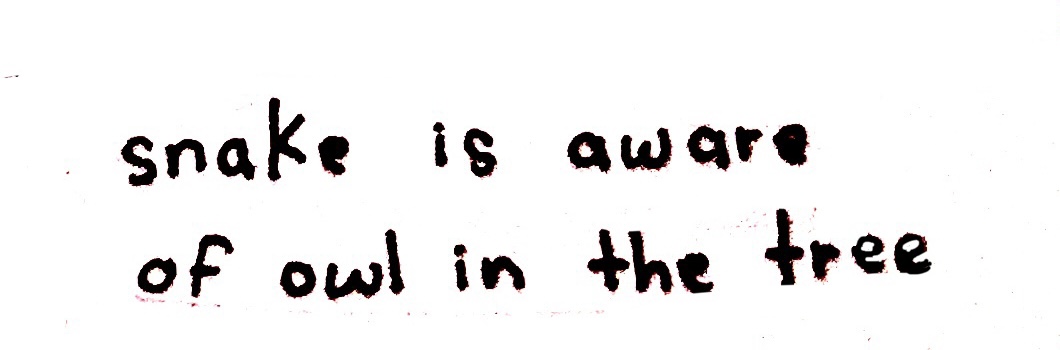 snake is aware
of owl in the tree